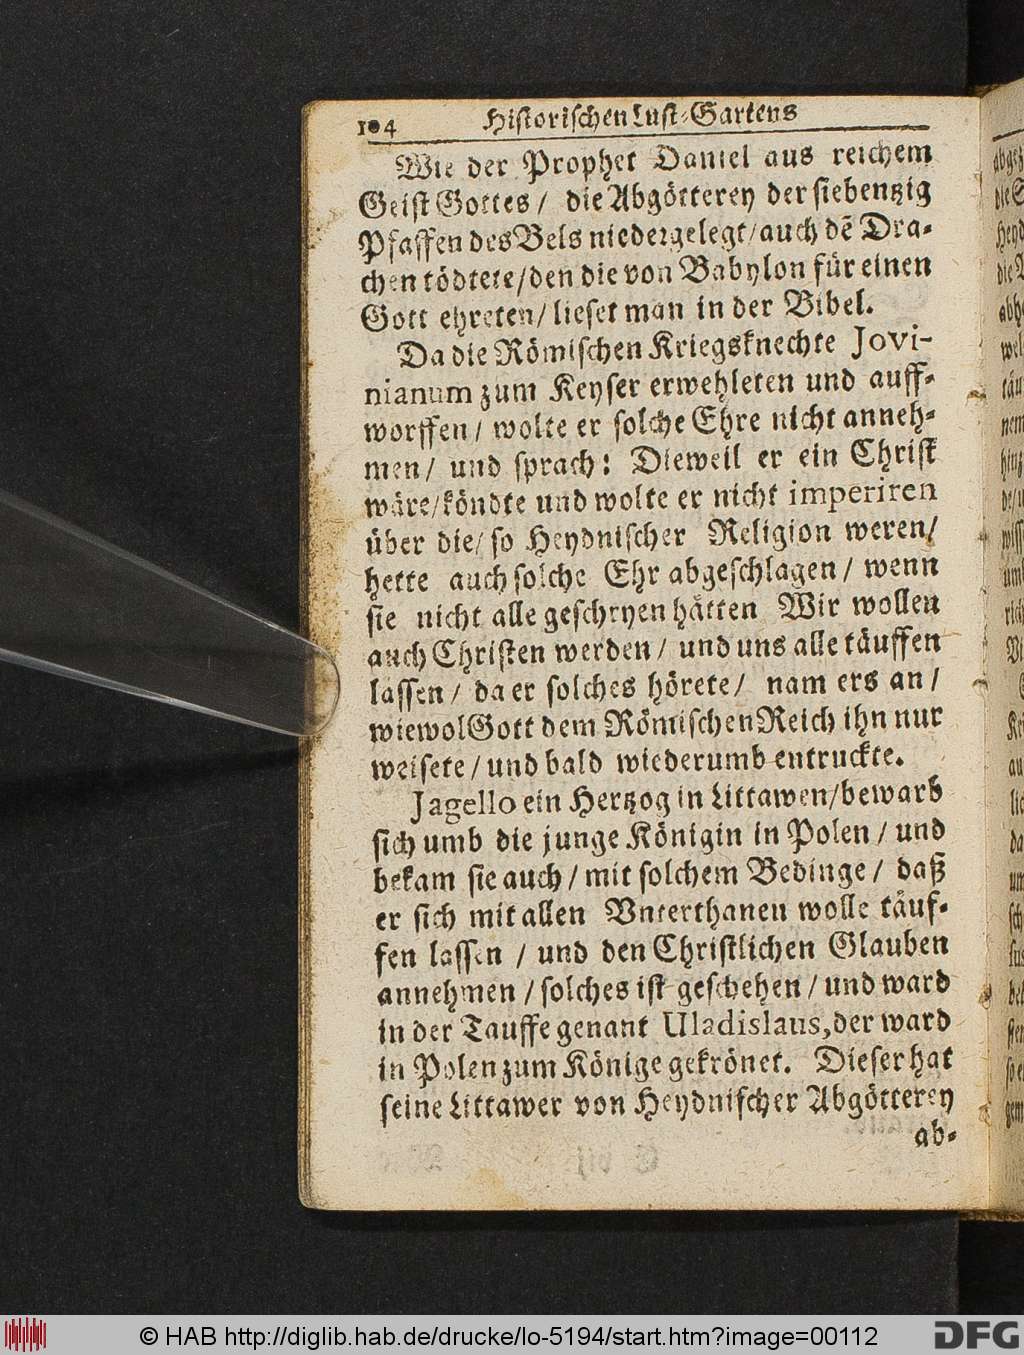 104 Historischen Lust-Gartens
Wie der Prophet Daniel aus reichem
Geist Gottes / die Abgötterey der siebentzig
Pfaffen des Bels niedergelegt / auch dẽ Dra-
chen tödtete / den die von Babylon für einen
Gott ehreten / lieset man in der Bibel.
Da die Römischen Kriegsknechte Jovi-
nianum zum Keyser erwehleten und auff-
worffen / wolte er solche Ehre nicht anneh-
men / und sprach: Dieweil er ein Christ
wäre / köndte und wolte er nicht imperiren
über die / so Heydnischer Religion weren /
hette auch solche Ehr abgeschlagen / wenn
sie nicht alle geschryen hätten Wir wollen
auch Christen werden / und uns alle täuffen
lassen / da er solches hörete / nam ers an /
wiewol Gott dem Römischen Reich ihn nur
weisete / und bald wiederumb entruckte.
Jagello ein Hertzog in Littawen / bewarb
sich umb die junge Königin in Polen / und
bekam sie auch / mit solchem Bedinge / daß
er sich mit allen Vnterthanen wolle täuf-
fen lassen / und den Christlichen Glauben
annehmen / solches ist geschehen / und ward
in der Tauffe genant Uladislaus, der ward
in Polen zum Könige gekrönet. Dieser hat
seine Littawer von Heydnischer Abgötterey
ab-
© HAB http://diglib.hab.de/drucke/lo-5194/start.htm?image=00112
DFG